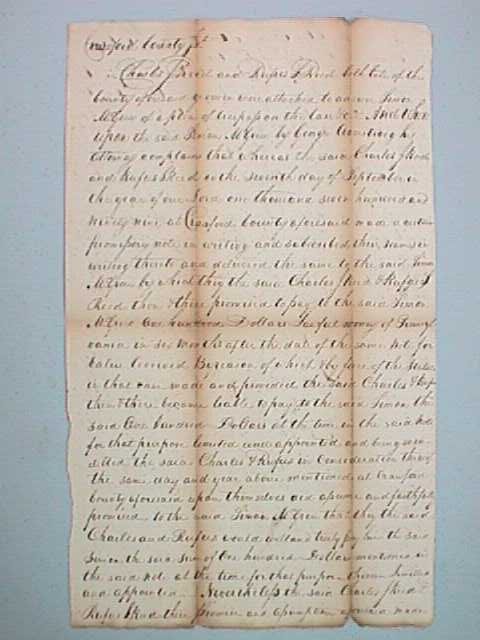 Crawford County ss
Charles J Reed and Rufus S Reed both late of the
County aforesaid yeomen were attached to answer Simon
McGrew of a plea of trespass on the case &c. And whereupon
upon the said Simon McGrew by George Armstrong his
attorney complains that whereas the said Charles J Reed
and Rufus S Reed on the seventh day of September in
the year of our Lord one thousand seven hundred and
ninety nine at Crawford County aforesaid made a certain
promissory note in writing and subscribed their names in
writing thereto and delivered the same to the said Simon
McGrew by which they the said Charles J Reed & Rufus S
Reed then & there promised to pay to the said Simon
McGrew One hundred Dollars lawful money of Pennsyl
vania in six months after the date of the same note for
value received By reason of which & by force of the Statute
in that case made and provided the said Charles & Rufus
then & there became liable to pay to the said Simon the
said One hundred Dollars at the time in the said Note
for that purpose limited and appointed and being so in
debted the said Charles & Rufus in Consideration thereof
the same day and year above mentioned at Crawford
County aforesaid upon themselves did assume and faithfully
promised to the said Simon McGrew that they the said
Charles and Rufus would well and truly pay him the said
Simon the said sum of One hundred Dollars mentioned in
the said note at the time for that purpose therein limited
and appointed Nevertheless the said Charles J Reed &
Rufus S Reed their promise and assumption aforesaid made